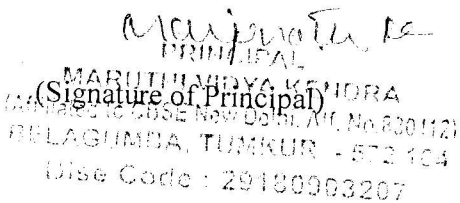 PRINCIPAL
MARUTHI VIDYA KENDRA
(Signature of Principal)
(Affiliated to CBSE New Delhi, Aff. No.830112)
BELAGUMBA, TUMKUR - 572 104
Dise Code : 29180903207